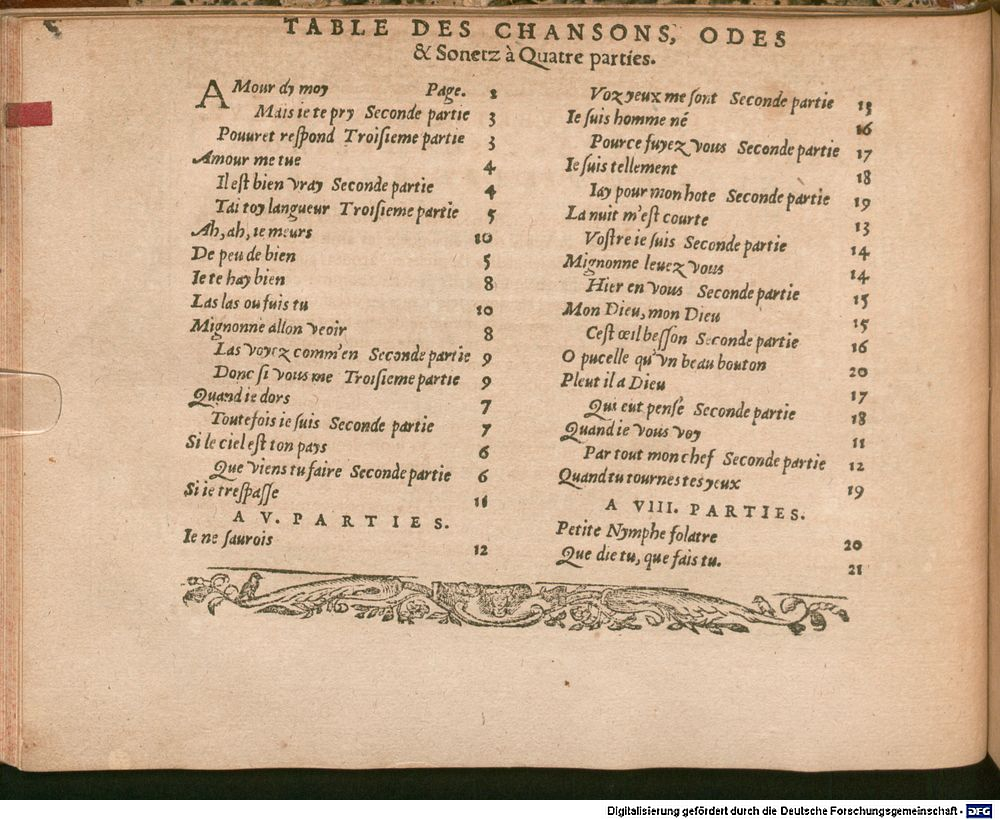 TABLE DES CHANSONS, ODES
& Sonetz à Quatre parties.
AMour dy moy Page. 2
Mais ie te pry Seconde partie 3
Pouuret respond Troisieme partie 3
Amour me tue 4
Il est bien vray Seconde partie 4
Tai toy langueur Troisieme partie 5
Ah, ah, ie meurs 10
De peu de bien 5
Ie te hay bien 8
Las las ou fuis tu 10
Mignonne allon veoir 8
Las voyez comm'en Seconde partie 9
Donc si vous me Troisieme partie 9
Quand ie dors 7
Toutefois ie suis Seconde partie 7
Si le ciel est ton pays 6
Que viens tu faire Seconde partie 6
Si ie trespasse 11
A V. PARTIES.
Ie ne saurois 12
Voz yeux me sont Seconde partie 15
Ie suis homme né 16
Pource fuyez vous Seconde partie 17
Ie suis tellement 18
Iay pour mon hote Seconde partie 19
La nuit m'est courte 13
Vostre ie suis Seconde partie 14
Mignonne leuez vous 14
Hier en vous Seconde partie 15
Mon Dieu, mon Dieu 15
Cest œil besson Seconde partie 16
O pucelle qu'vn beau bouton 20
Pleut il a Dieu 17
Qui eut pense Seconde partie 18
Quand ie vous voy 11
Par tout mon chef Seconde partie 12
Quand tu tournes tes yeux 19
A VIII. PARTIES.
Petite Nymphe folatre 20
Que die tu, que fais tu. 21
Digitalisierung gefördert durch die Deutsche Forschungsgemeinschaft - DFG